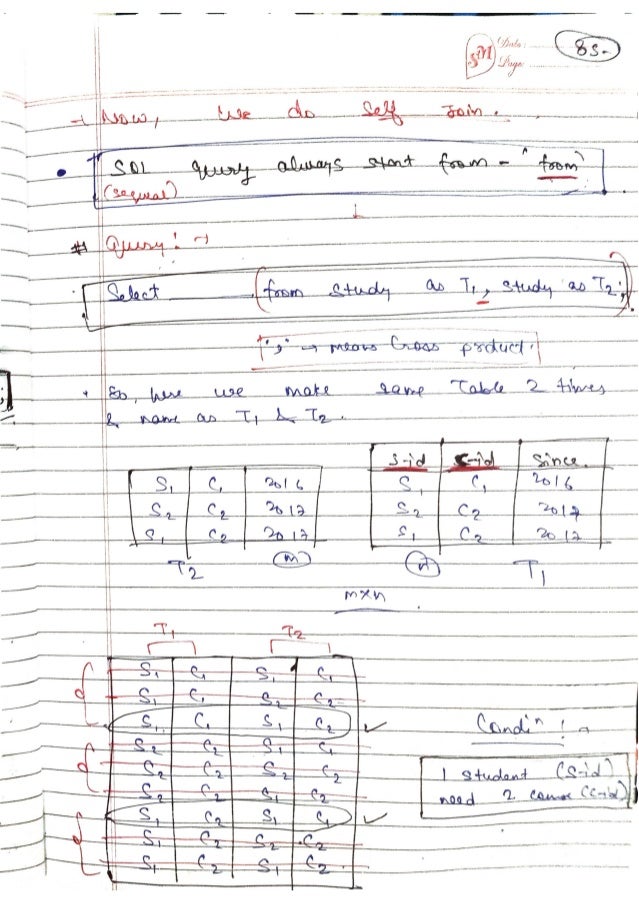 SM Date:
Page
85-
→ Now, we do Self Join.
• SQL query always start from - "from"
(sequal)
# Query: →
Select from study as T1, study as T2;
"," → means Cross product.
• So, here we make same Table 2 times
& name as T1 & T2.
S1 C1 2016
S2 C2 2017
S1 C2 2017
T2 (m)
S-id C-id Since.
S1 C1 2016
S2 C2 2017
S1 C2 2017
(n) T1
m×n
T1 T2
S1 C1 S1 C1
S1 C1 S2 C2
S1 C1 S1 C2 ✓
S2 C2 S1 C1
S2 C2 S2 C2
S2 C2 S1 C2
S1 C2 S1 C1 ✓
S1 C2 S2 C2
S1 C2 S1 C2
Condiⁿ: →
1 student (S-id)
need 2 course (C-id)